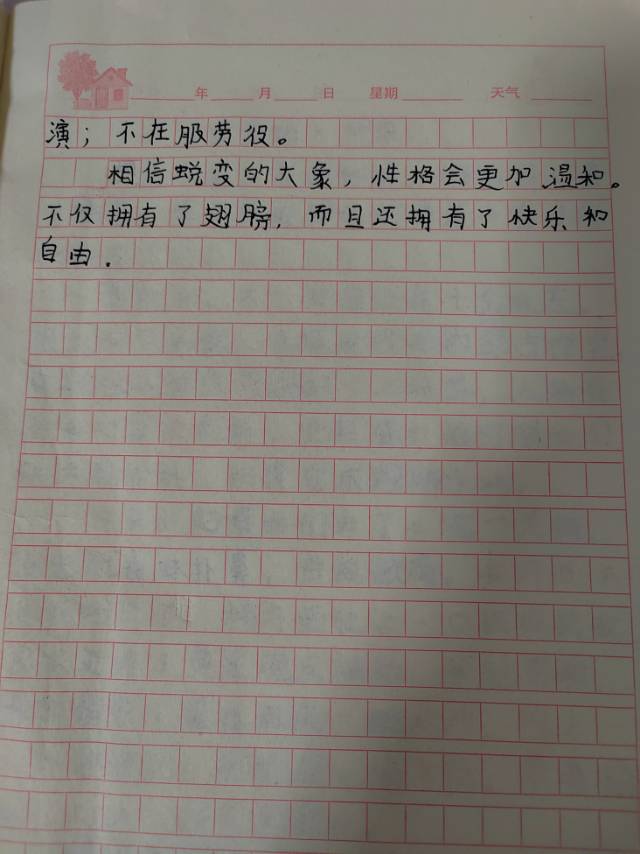 年 月 日 星期 天气
演；不在服劳役。
相信蜕变的大象，性格会更加温和。
不仅拥有了翅膀，而且还拥有了快乐和
自由.